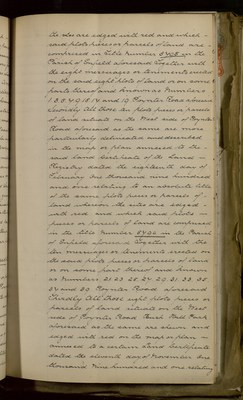 the sites are edged red and which
said plots pieces or parcels of land are
comprised in title number 5795 in the
Parish of Enfield aforesaid Together with
the eight messuages or tenements erected
on the said eight plots of land or on some
parts thereof and known as Numbers
Poynter Road aforesaid
Secondly All those ten plots pieces or parcels
of land situate on the West side of Poynter
Road aforesaid as the same are more
particularly delineated and described
in the map or plan annexed to the
said Land Certificate of the
Registry dated the eighteenth day of
one thousand nine hundred
and one relating to an absolute title
of the same plots pieces or parcels of
land whereon the sites are edged
with red and which said plots
pieces or parcels of land are comprised
in the title Number in the Parish
of Enfield aforesaid Together with the
ten messuages or tenements erected on
the said plots pieces or parcels of land
or on some part thereof and known
as Numbers 21 23 25 27 29 31 33 35
37 and 39 Poynter Road aforesaid
Thirdly All those eight plots pieces or
parcels of land situate on the West
side of Poynter Road Bush Hill Park
aforesaid as the same are shewn and
edged with red on the map or plan
annexed to a certain Land Certificate
dated the eleventh day of November One
thousand Nine hundred and one relating